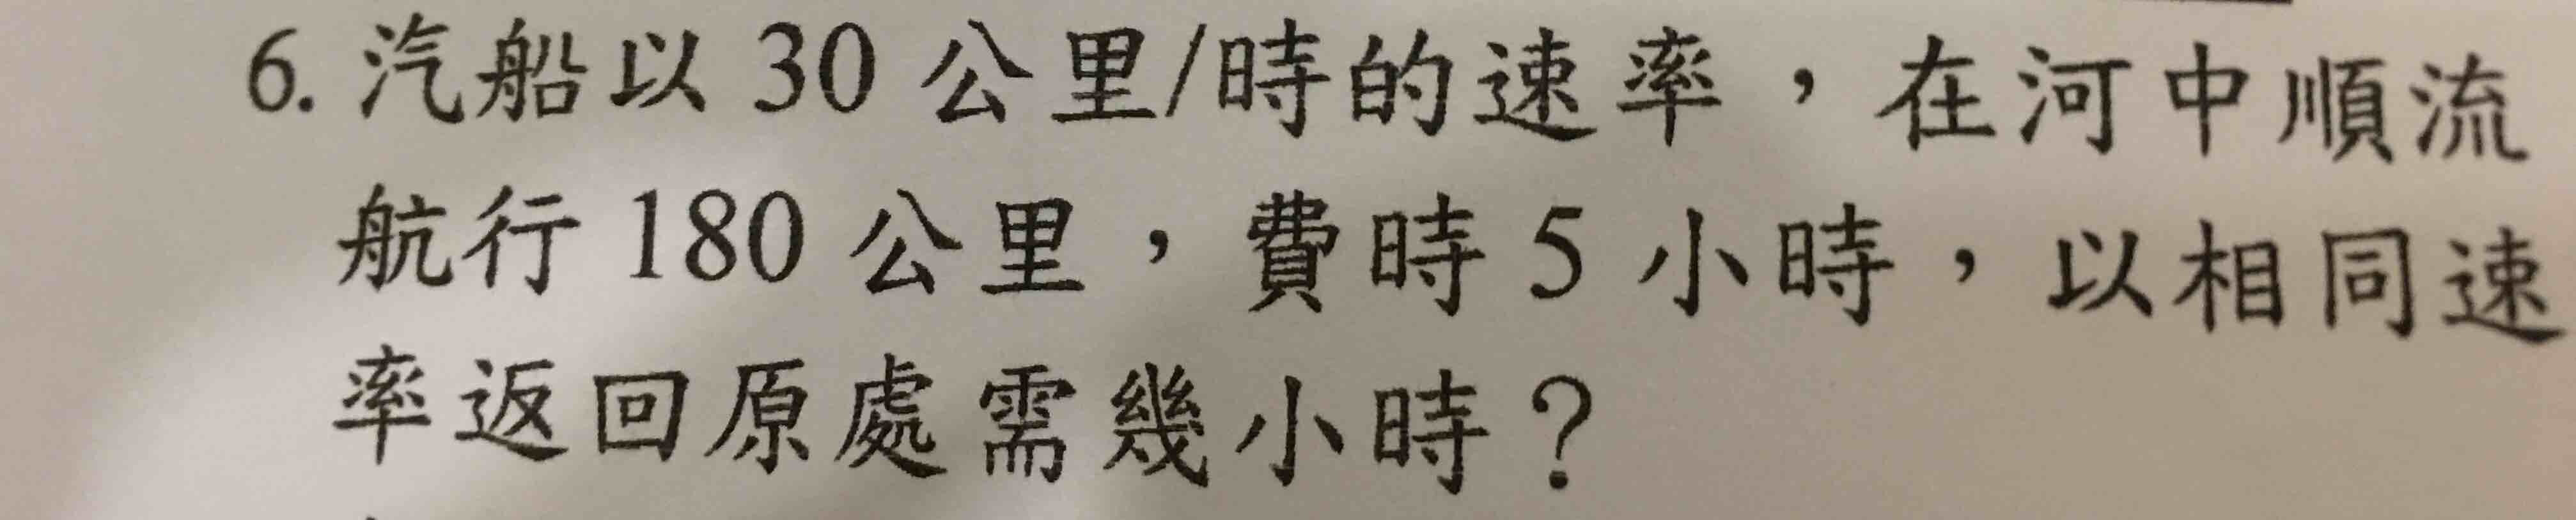 6. 汽船以 30 公里/時的速率，在河中順流
航行 180 公里，費時 5 小時，以相同速
率返回原處需幾小時？